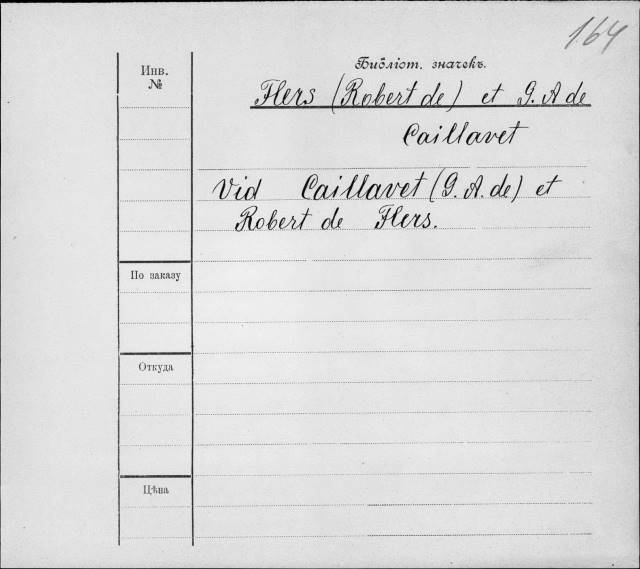 164
Библіот. значекъ.
Инв.
№
Flers (Robert de) et G. A de
Caillavet
Vid Caillavet (G. A. de) et
Robert de Flers.
По заказу
Откуда
Цѣна